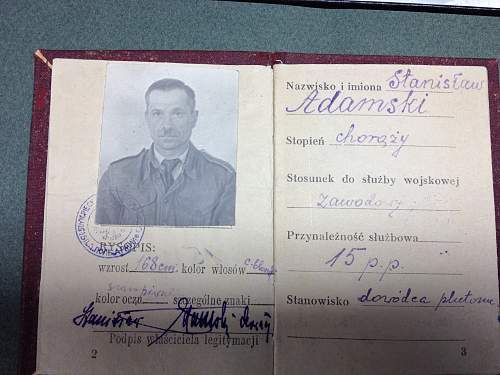 RYSOPIS:
wzrost 168 cm. kolor włosów c. blond
kolor oczu szczególne znaki
Stanisław Adamski
Podpis właściciela legitymacji
2
Nazwisko i imiona Stanisław
Adamski
Stopień chorąży
Stosunek do służby wojskowej
zawodowy
Przynależność służbowa
15 p.p.
Stanowisko dowódca plutonu
3